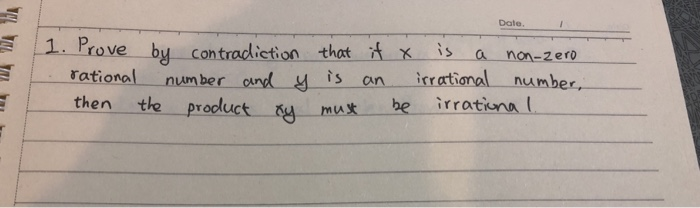 Date. /
1. Prove by contradiction that if x is a non-zero
rational number and y is an irrational number,
then the product xy must be irrational.